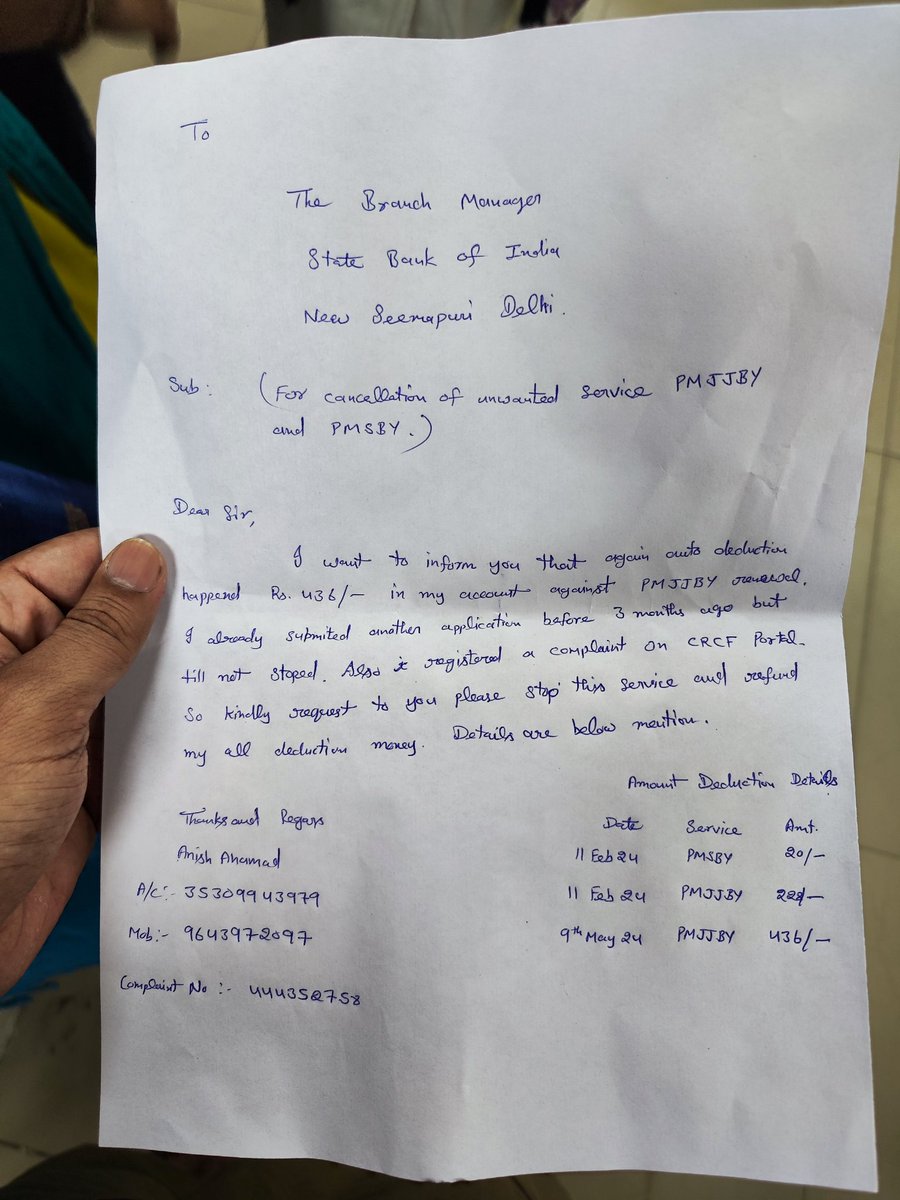 To
The Branch Manager
State Bank of India
New Seemapuri Delhi.
Sub: (For cancellation of unwanted service PMJJBY
and PMSBY.)
Dear Sir,
I want to inform you that again auto deduction
happend Rs. 436/- in my account against PMJJBY renewal.
I already submited another application before 3 months ago but
till not stoped. Also i registered a complaint on CRCF Portal.
So kindly request to you please stop this service and refund
my all deduction money. Details are below mention.
Amount Deduction Details
Thanks and Regars
Anish Ahamad
A/C:- 35309943979
Mob:- 9643972097
Complaint No :- 4443582758
Date Service Amt.
11 Feb 24 PMSBY 20/-
11 Feb 24 PMJJBY
9th May 24 PMJJBY 436/-